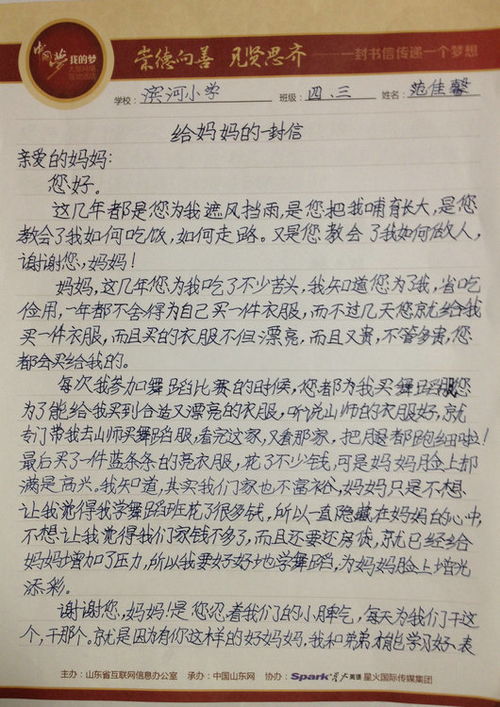 中国梦 我的梦
崇德向善 见贤思齐 ——一封书信传递一个梦想
学校:滨河小学 班级:四.三 姓名:范佳馨
给妈妈的一封信
亲爱的妈妈:
您好。
这几年都是您为我遮风挡雨,是您把我哺育长大,是您
教会了我如何吃饭,如何走路。又是您教会了我如何做人,
谢谢您,妈妈!
妈妈,这几年您为我吃了不少苦头,我知道您为了我,省吃
俭用,一年都不舍得为自己买一件衣服,而不过几天您就给我
买一件衣服,而且买的衣服不但漂亮,而且又贵,不管多贵,您
都会买给我的。
每次我参加舞蹈比赛的时候,您都为我买舞蹈服您
为了能给我买到合适又漂亮的衣服,听说山师的衣服好,就
专门带我去山师买舞蹈服,看完这家,又看那家,把腿都跑细啦!
最后买了一件蓝条条的亮衣服,花了不少钱,可是妈妈脸上却
满是高兴,我知道,其实我们家也不富裕,妈妈只是不想
让我觉得我学舞蹈班花了很多钱,所以一直隐藏在妈妈的心中,
不想让我觉得我们家钱不多了,而且还要还房债,就已经给
妈妈增加了压力,所以我要好好地学舞蹈,为妈妈脸上增光
添彩。
谢谢您,妈妈!是您忍着我们的小脾气,每天为我们干这
个,干那个。就是因为有你这样的好妈妈,我和弟弟才能学习好、表
主办:山东省互联网信息办公室 承办:中国山东网 协办:Spark 星火英语 星火国际传媒集团